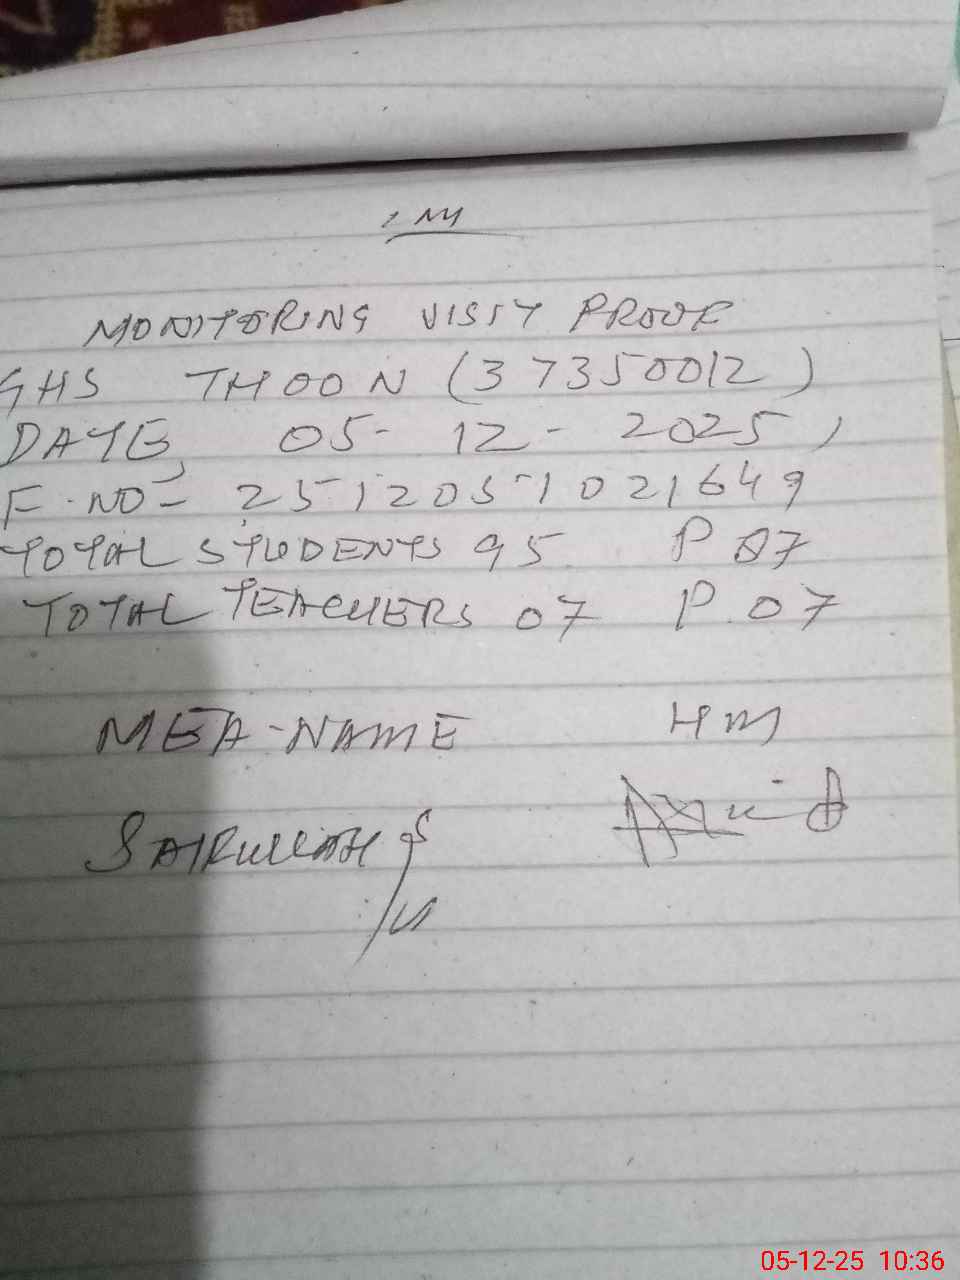 MONITORING VISIT PROOF
GHS THOON (37350012)
DATE, 05-12-2025,
F.NO= 2512051021649
TOTAL STUDENTS 95 P 87
TOTAL TEACHERS 07 P.07
MEA-NAME HM
SAIFULLAH
05-12-25 10:36